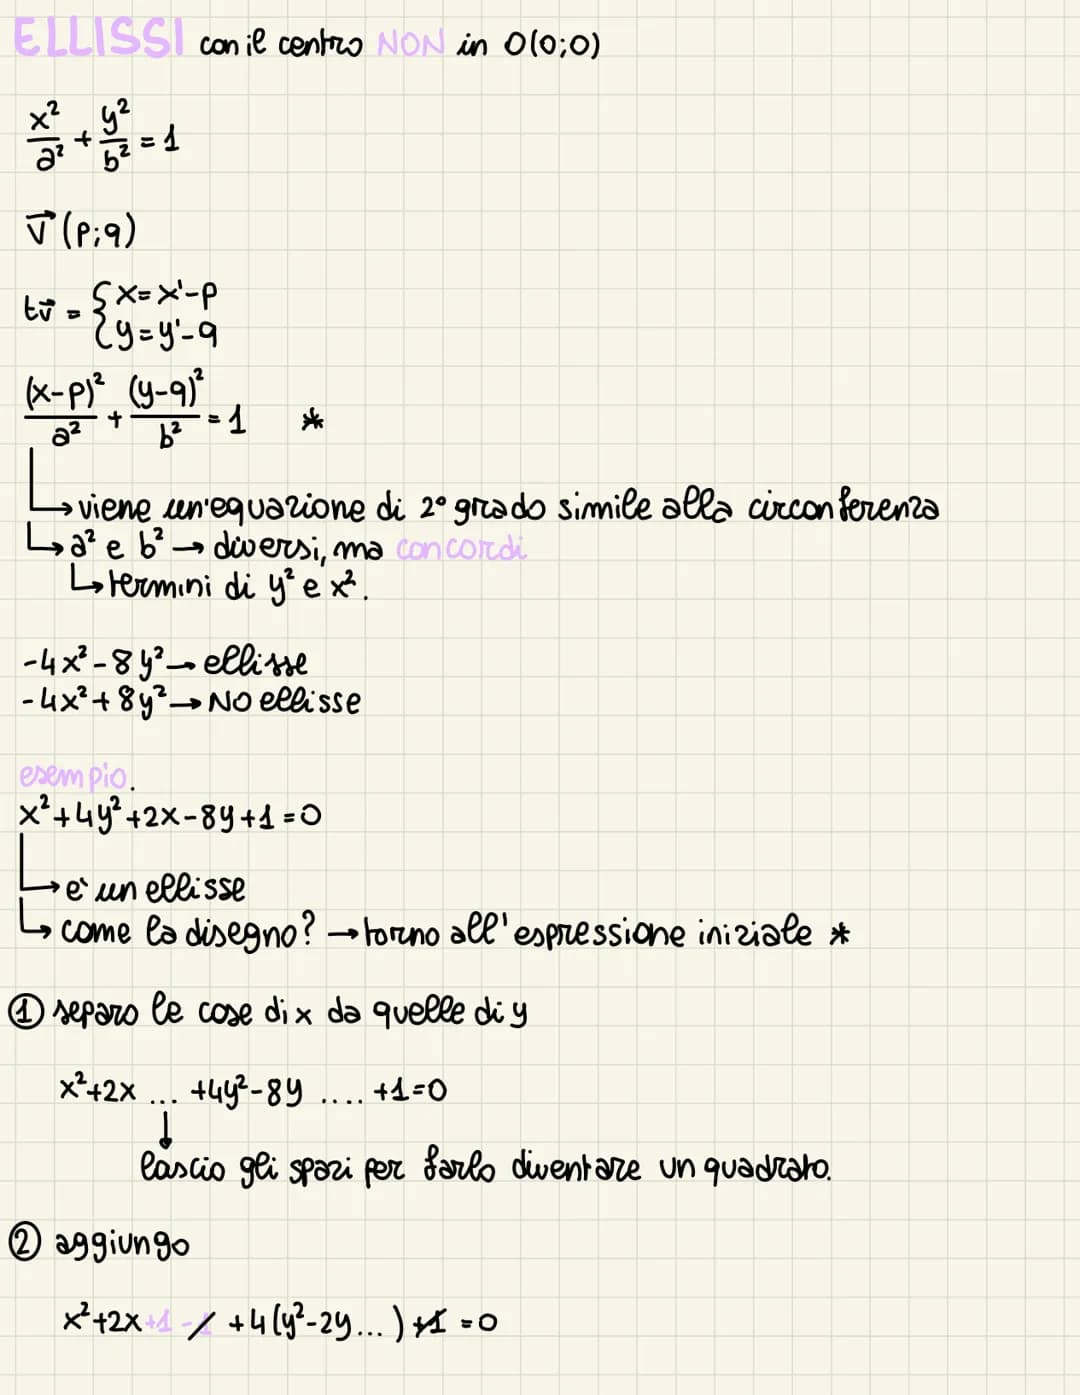 ELLISSI con il centro NON in O(0;0)
x²/a² + y²/b² = 1
v⃗ (p;q)
tv⃗ = { x = x'-p
{ y = y'-q
(x-p)²/a² + (y-q)²/b² = 1 *
↳ viene un'equazione di 2° grado simile alla circonferenza
↳ a² e b² → diversi, ma concordi
↳ termini di y² e x².
-4x² - 8y² → ellisse
-4x² + 8y² → NO ellisse
esempio.
x² + 4y² + 2x - 8y + 1 = 0
↳ è un ellisse
↳ come la disegno? → torno all'espressione iniziale *
① separo le cose di x da quelle di y
x²+2x ... +4y²-8y .... +1=0
↓
lascio gli spazi per farlo diventare un quadrato.
② aggiungo
x²+2x+1-1 +4(y²-2y...) +1 = 0